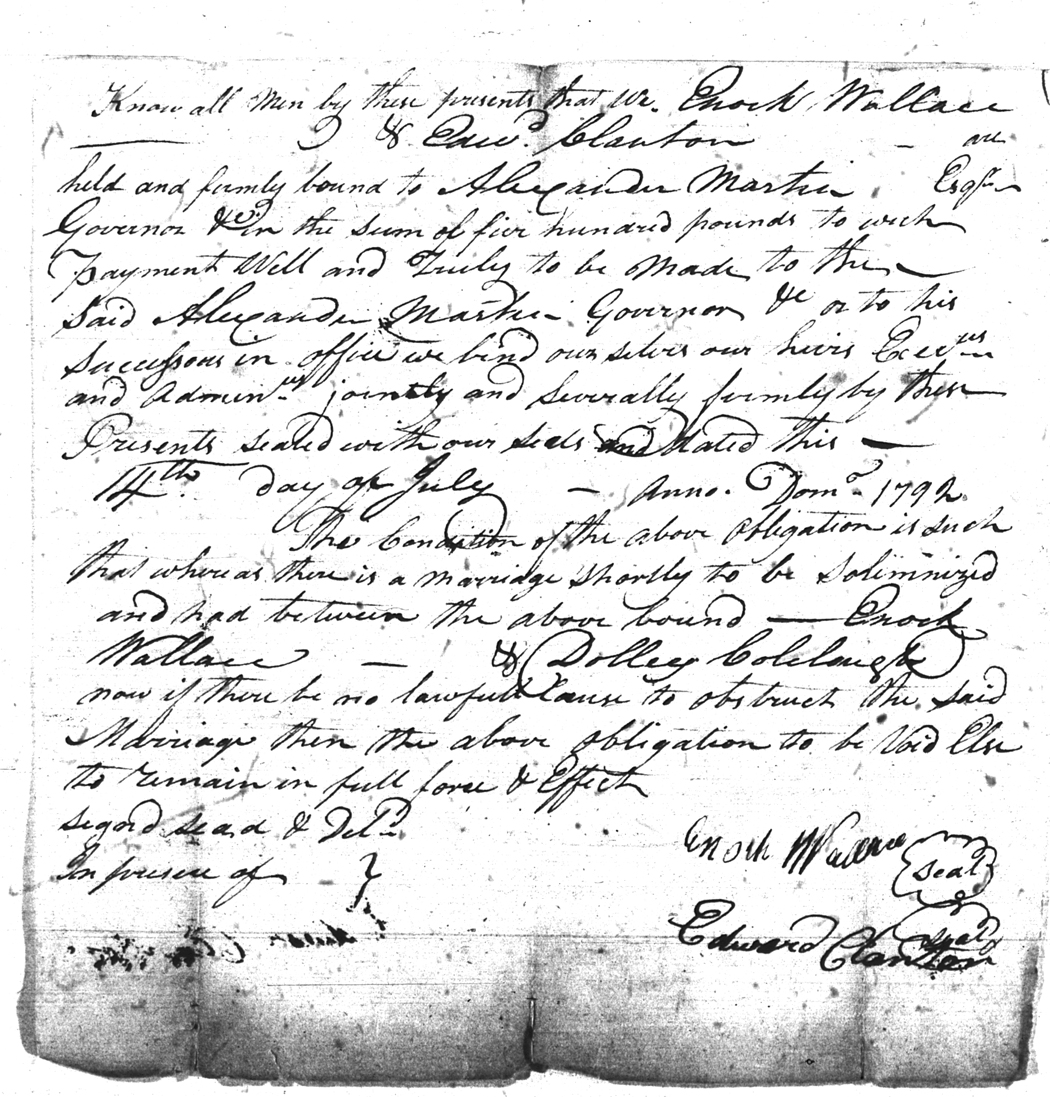 Know all Men by these presents that We. Enoch Wallace
& Edwd. Clanton – are
held and firmly bound to Alexander Martin Esqr.
Governor &c in the sum of five hundred pounds to wich
Payment Well and Truly to be Made to the
Said Alexander Martin Governor &c or to his
Successors in office we bind our selves our heirs Execurs
and Adminrs jointly and severally firmly by these
Presents sealed with our seels and dated this —
14th. day of July – Anno. Domo. 1792
The Condition of the above obligation is such
that whereas there is a marriage shortly to be Solemnized
and had between the above bound — Enoch
Wallace — & Dolley Colclough
now if there be no lawfull Cause to obstruct the said
Marriage then the above obligation to be Void Else
to remain in full force & Effect
segnd sead & Deld
In presence of
Enoch Wallace seal
Edward Clanton seal